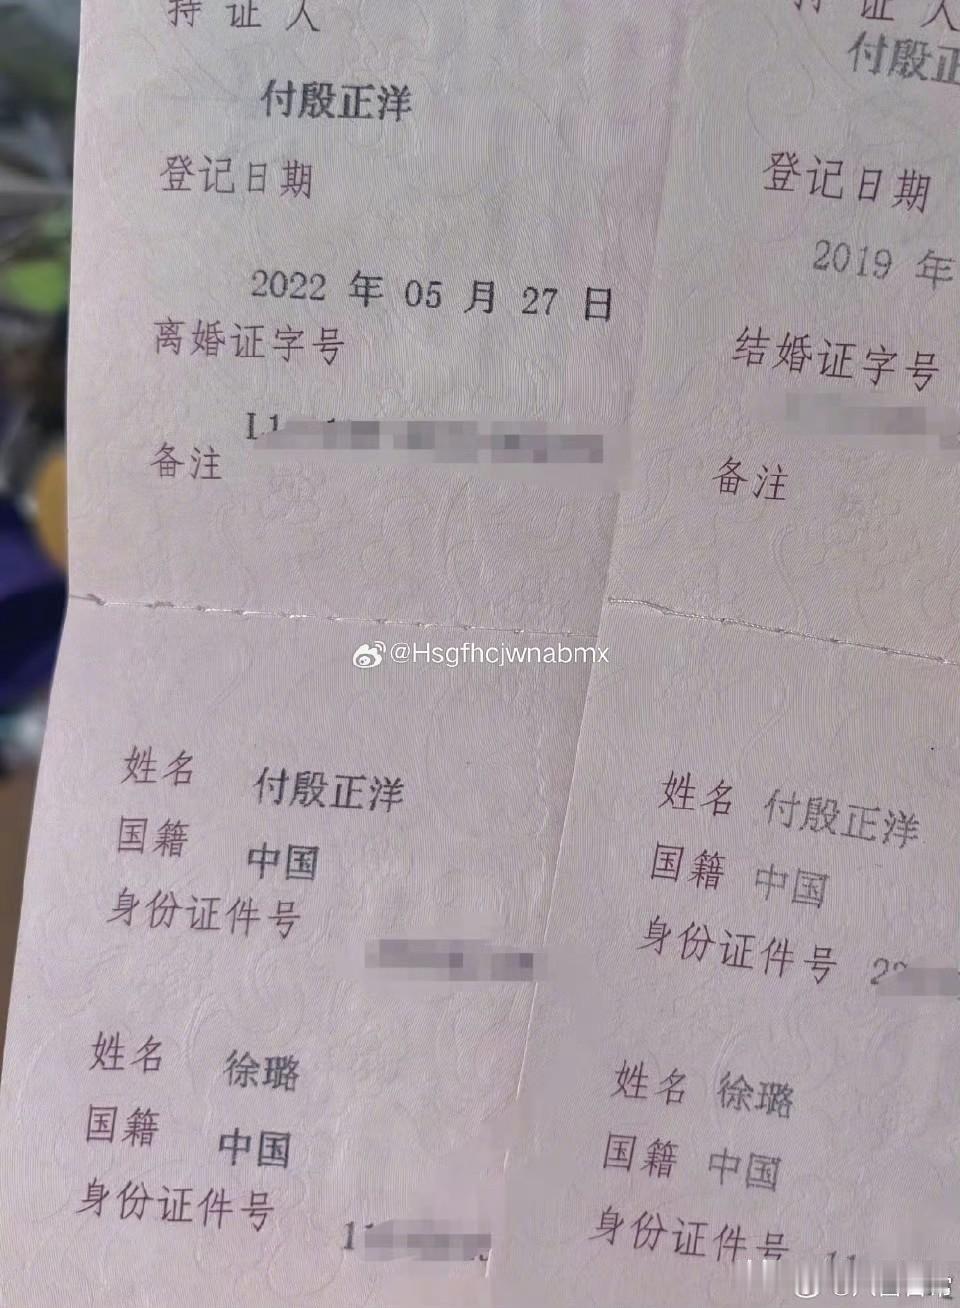 持证人
付殷正洋
登记日期
2022 年 05 月 27 日
离婚证字号
备注
姓名 付殷正洋
国籍 中国
身份证件号
姓名 徐璐
国籍 中国
身份证件号
11
持证人
付殷正
登记日期
2019 年
结婚证字号
备注
姓名 付殷正洋
国籍 中国
身份证件号 22
姓名 徐璐
国籍 中国
身份证件号 11
@Hsgfhcjwnabmx